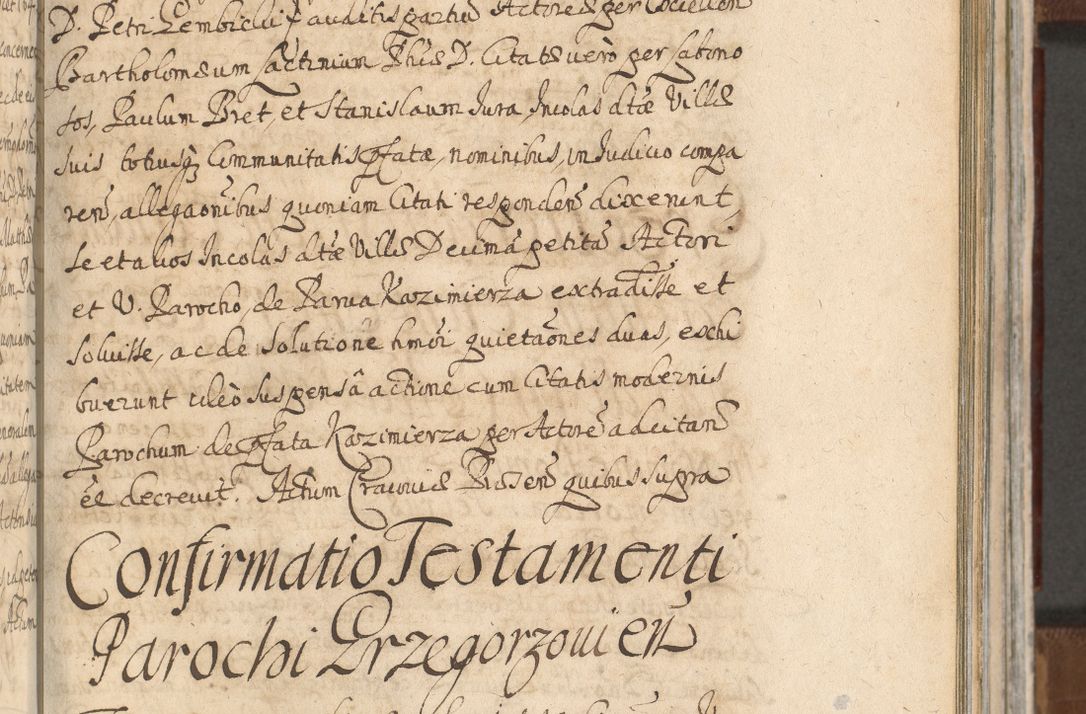 D. Petri Gembicki auditis partiu Actore per
Bartholomæum Phiæ D. Citatæ vero per fatono
tos, Paulum Bret, et Stanislaum Jura, Incolas dtæ Villæ
suis totiusq Communitatis pfatæ, nominibus, in Judicio compa
ren, allegaonibus quoniam Citati responden dixerunt,
se et alios Incolas dtæ Villæ Decima petita Actori
et V. Parocho, de Parva Kazimierza extradisse et
solvisse, ac de Solutione hmoi quietaones duas, exhi
buerunt ideo suspensa actione cum Citatis modernis
Parochum de pfata Kazimierza per Actore adcitan
ee decrevit. Actum Cracoviæ Præsen quibus supra
Confirmatio Testamenti
Parochi Grzegorzovien